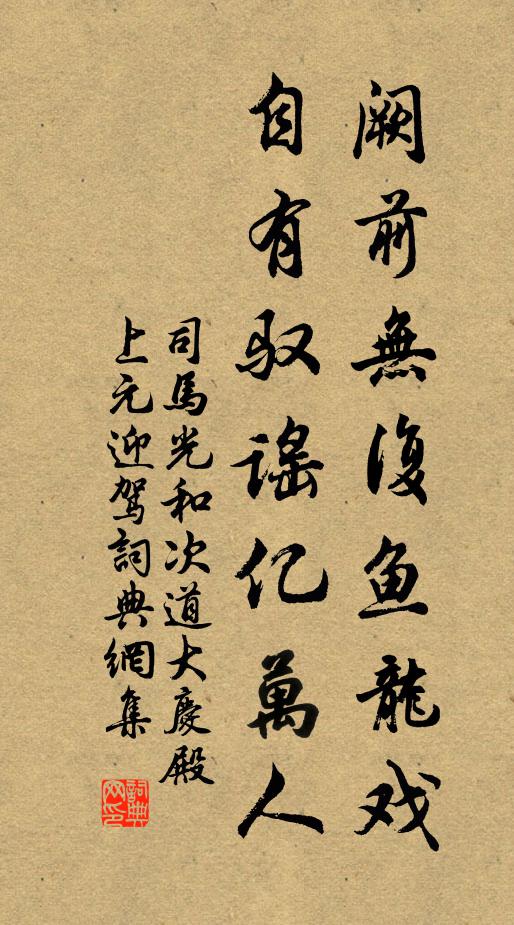 阙前無復鱼龍戏
自有驭謡亿萬人
司馬光和次道大慶殿
上元迎駕詞典網集
詞典
网印